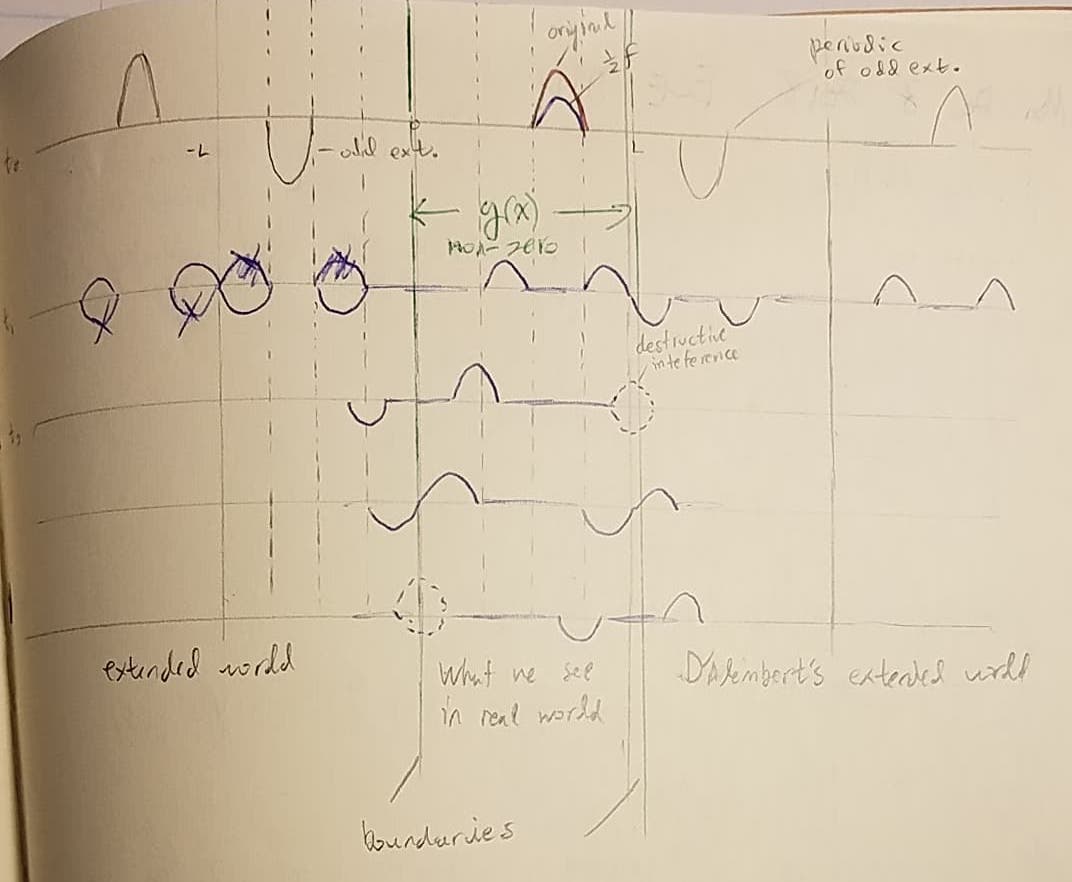 original
½f
periodic
of odd ext.
t₀
-L
- odd ext.
L
g(x)
non-zero
t₁
destructive
inteference
extended world
What we see
in real world
D'Alembert's extended world
boundaries